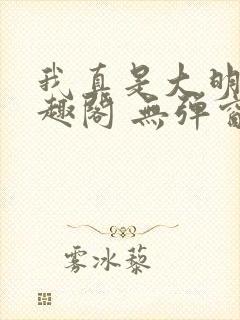 我真是大明
趣阁 無弹窗
雾冰藜